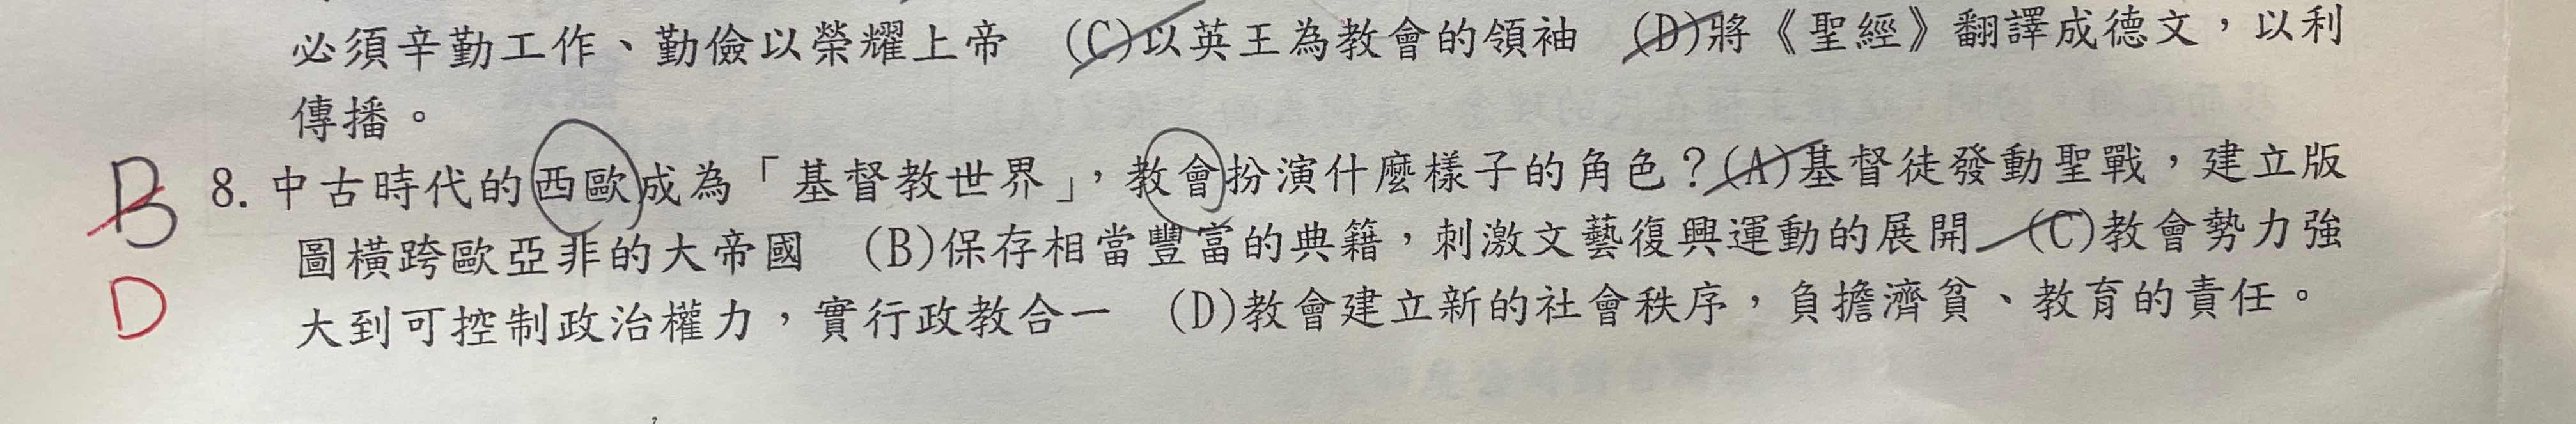 必須辛勤工作、勤儉以榮耀上帝 (C)以英王為教會的領袖 (D)將《聖經》翻譯成德文，以利
傳播。
B 8. 中古時代的西歐成為「基督教世界」，教會扮演什麼樣子的角色？(A)基督徒發動聖戰，建立版
圖橫跨歐亞非的大帝國 (B)保存相當豐富的典籍，刺激文藝復興運動的展開 (C)教會勢力強
D 大到可控制政治權力，實行政教合一 (D)教會建立新的社會秩序，負擔濟貧、教育的責任。